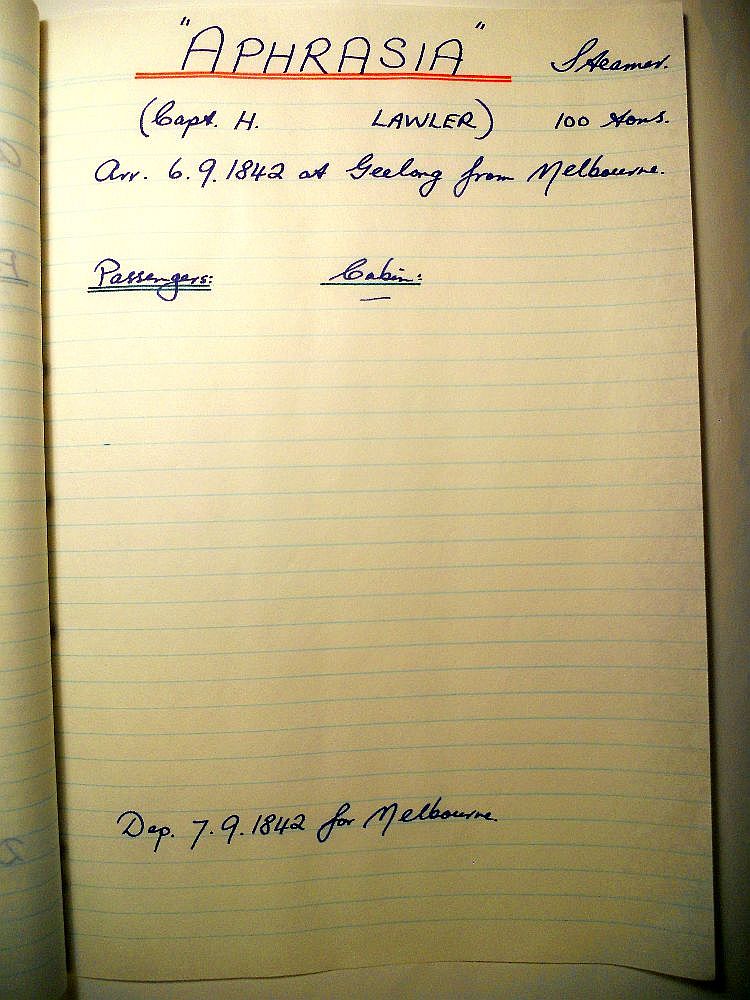 "APHRASIA" Steamer.
(Capt. H. LAWLER) 100 tons.
Arr. 6.9.1842 at Geelong from Melbourne.
Passengers: Cabin:
—
Dep. 7.9.1842 for Melbourne.